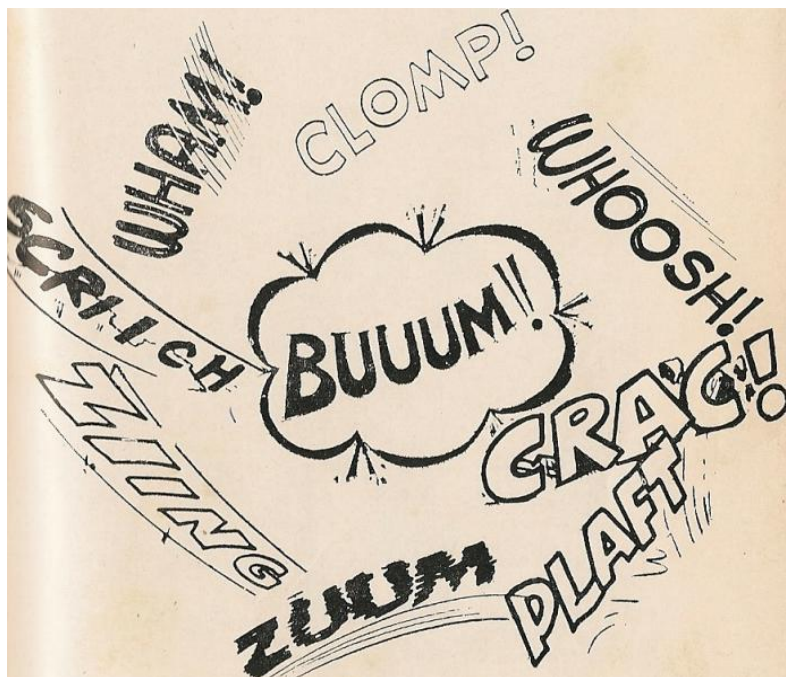 WHAM!
CLOMP!
WHOOSH!
SCRI-I-ICH
BUUUM!!
CRAC!
ZIIING
PLAFT
ZUUM